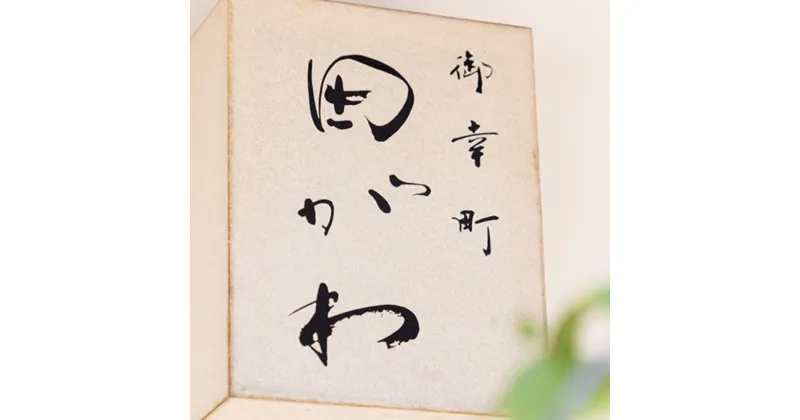 御幸町
田がわ